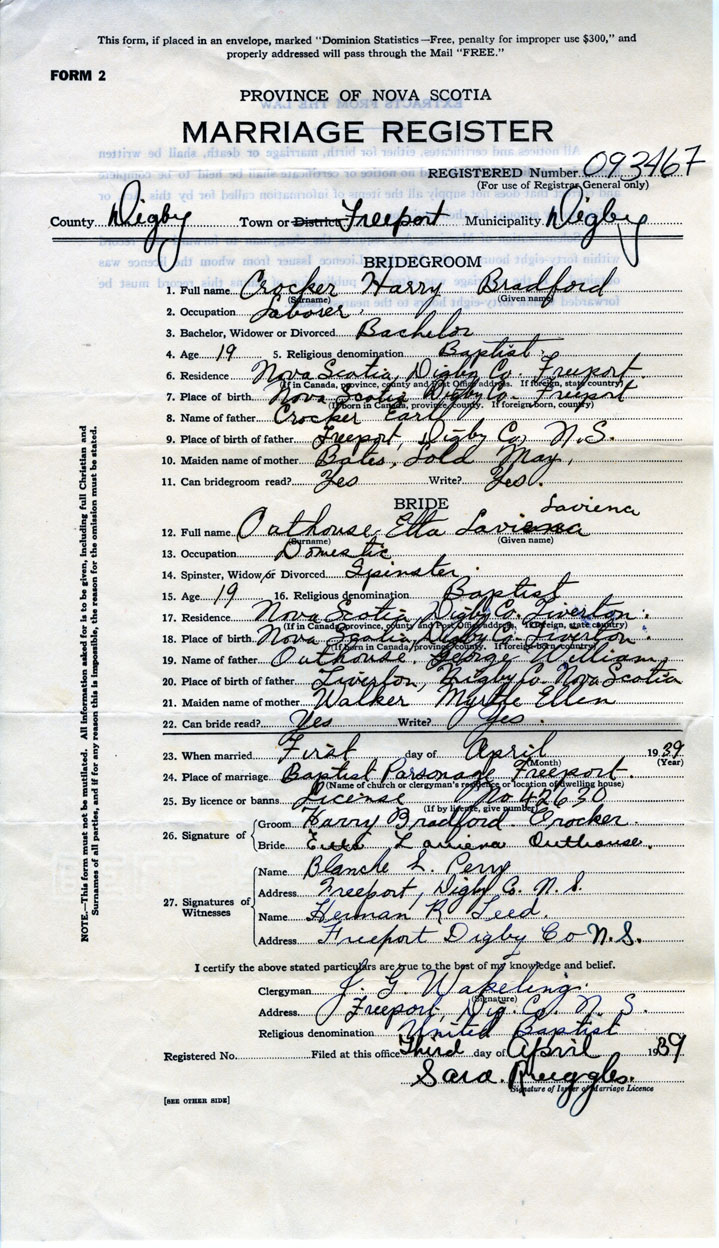 This form, if placed in an envelope, marked "Dominion Statistics—Free, penalty for improper use $300," and
properly addressed will pass through the Mail "FREE."
FORM 2
PROVINCE OF NOVA SCOTIA
MARRIAGE REGISTER
REGISTERED Number 093467
(For use of Registrar General only)
County Digby Town or District Freeport Municipality Digby
BRIDEGROOM
1. Full name Crocker Harry Bradford
(Surname) (Given name)
2. Occupation Laborer
3. Bachelor, Widower or Divorced Bachelor
4. Age 19 5. Religious denomination Baptist
6. Residence Nova Scotia, Digby Co. Freeport
(If in Canada, province, county and Post Office address. If foreign, state country)
7. Place of birth Nova Scotia Digby Co. Freeport
(If born in Canada, province, county. If foreign born, country)
8. Name of father Crocker Earl
9. Place of birth of father Freeport, Digby Co, N.S.
10. Maiden name of mother Bates, May,
11. Can bridegroom read? Yes Write? Yes.
BRIDE Laviena
12. Full name Outhouse Etta
(Surname) (Given name)
13. Occupation Domestic
14. Spinster, Widow or Divorced Spinster.
15. Age 19 16. Religious denomination Baptist
17. Residence Nova Scotia, Digby Co. Tiverton.
(If in Canada, province, county and Post Office address. If foreign, state country)
18. Place of birth Nova Scotia Digby Co. Tiverton.
(If born in Canada, province, county. If foreign born, country)
19. Name of father Outhouse. George William
20. Place of birth of father Tiverton, Digby Co Nova Scotia
21. Maiden name of mother Walker Myrtle Ellen
22. Can bride read? Yes Write? Yes.
23. When married First day of April 1939
(Month) (Year)
24. Place of marriage Baptist Parsonage Freeport.
(Name of church or clergyman's residence or location of dwelling house)
25. By licence or banns License No 42630
(If by license, give number)
26. Signature of Groom Harry Bradford Crocker
Bride Etta Laviena Outhouse.
27. Signatures of Witnesses
Name Blanche L. Perry
Address Freeport, Digby Co. N. S.
Name Herman R Teed.
Address Freeport Digby Co N.S.
I certify the above stated particulars are true to the best of my knowledge and belief.
Clergyman J. G. Wakeling.
(Signature)
Address Freeport, Dig. Co. N. S.
Religious denomination United Baptist
Registered No. Filed at this office Third day of April 1939
Sara. Ruggles.
Signature of Issuer of Marriage Licence
[SEE OTHER SIDE]
NOTE.—This form must not be mutilated. All information asked for is to be given, including full Christian and
Surnames of all parties, and if for any reason this is impossible, the reason for the omission must be stated.